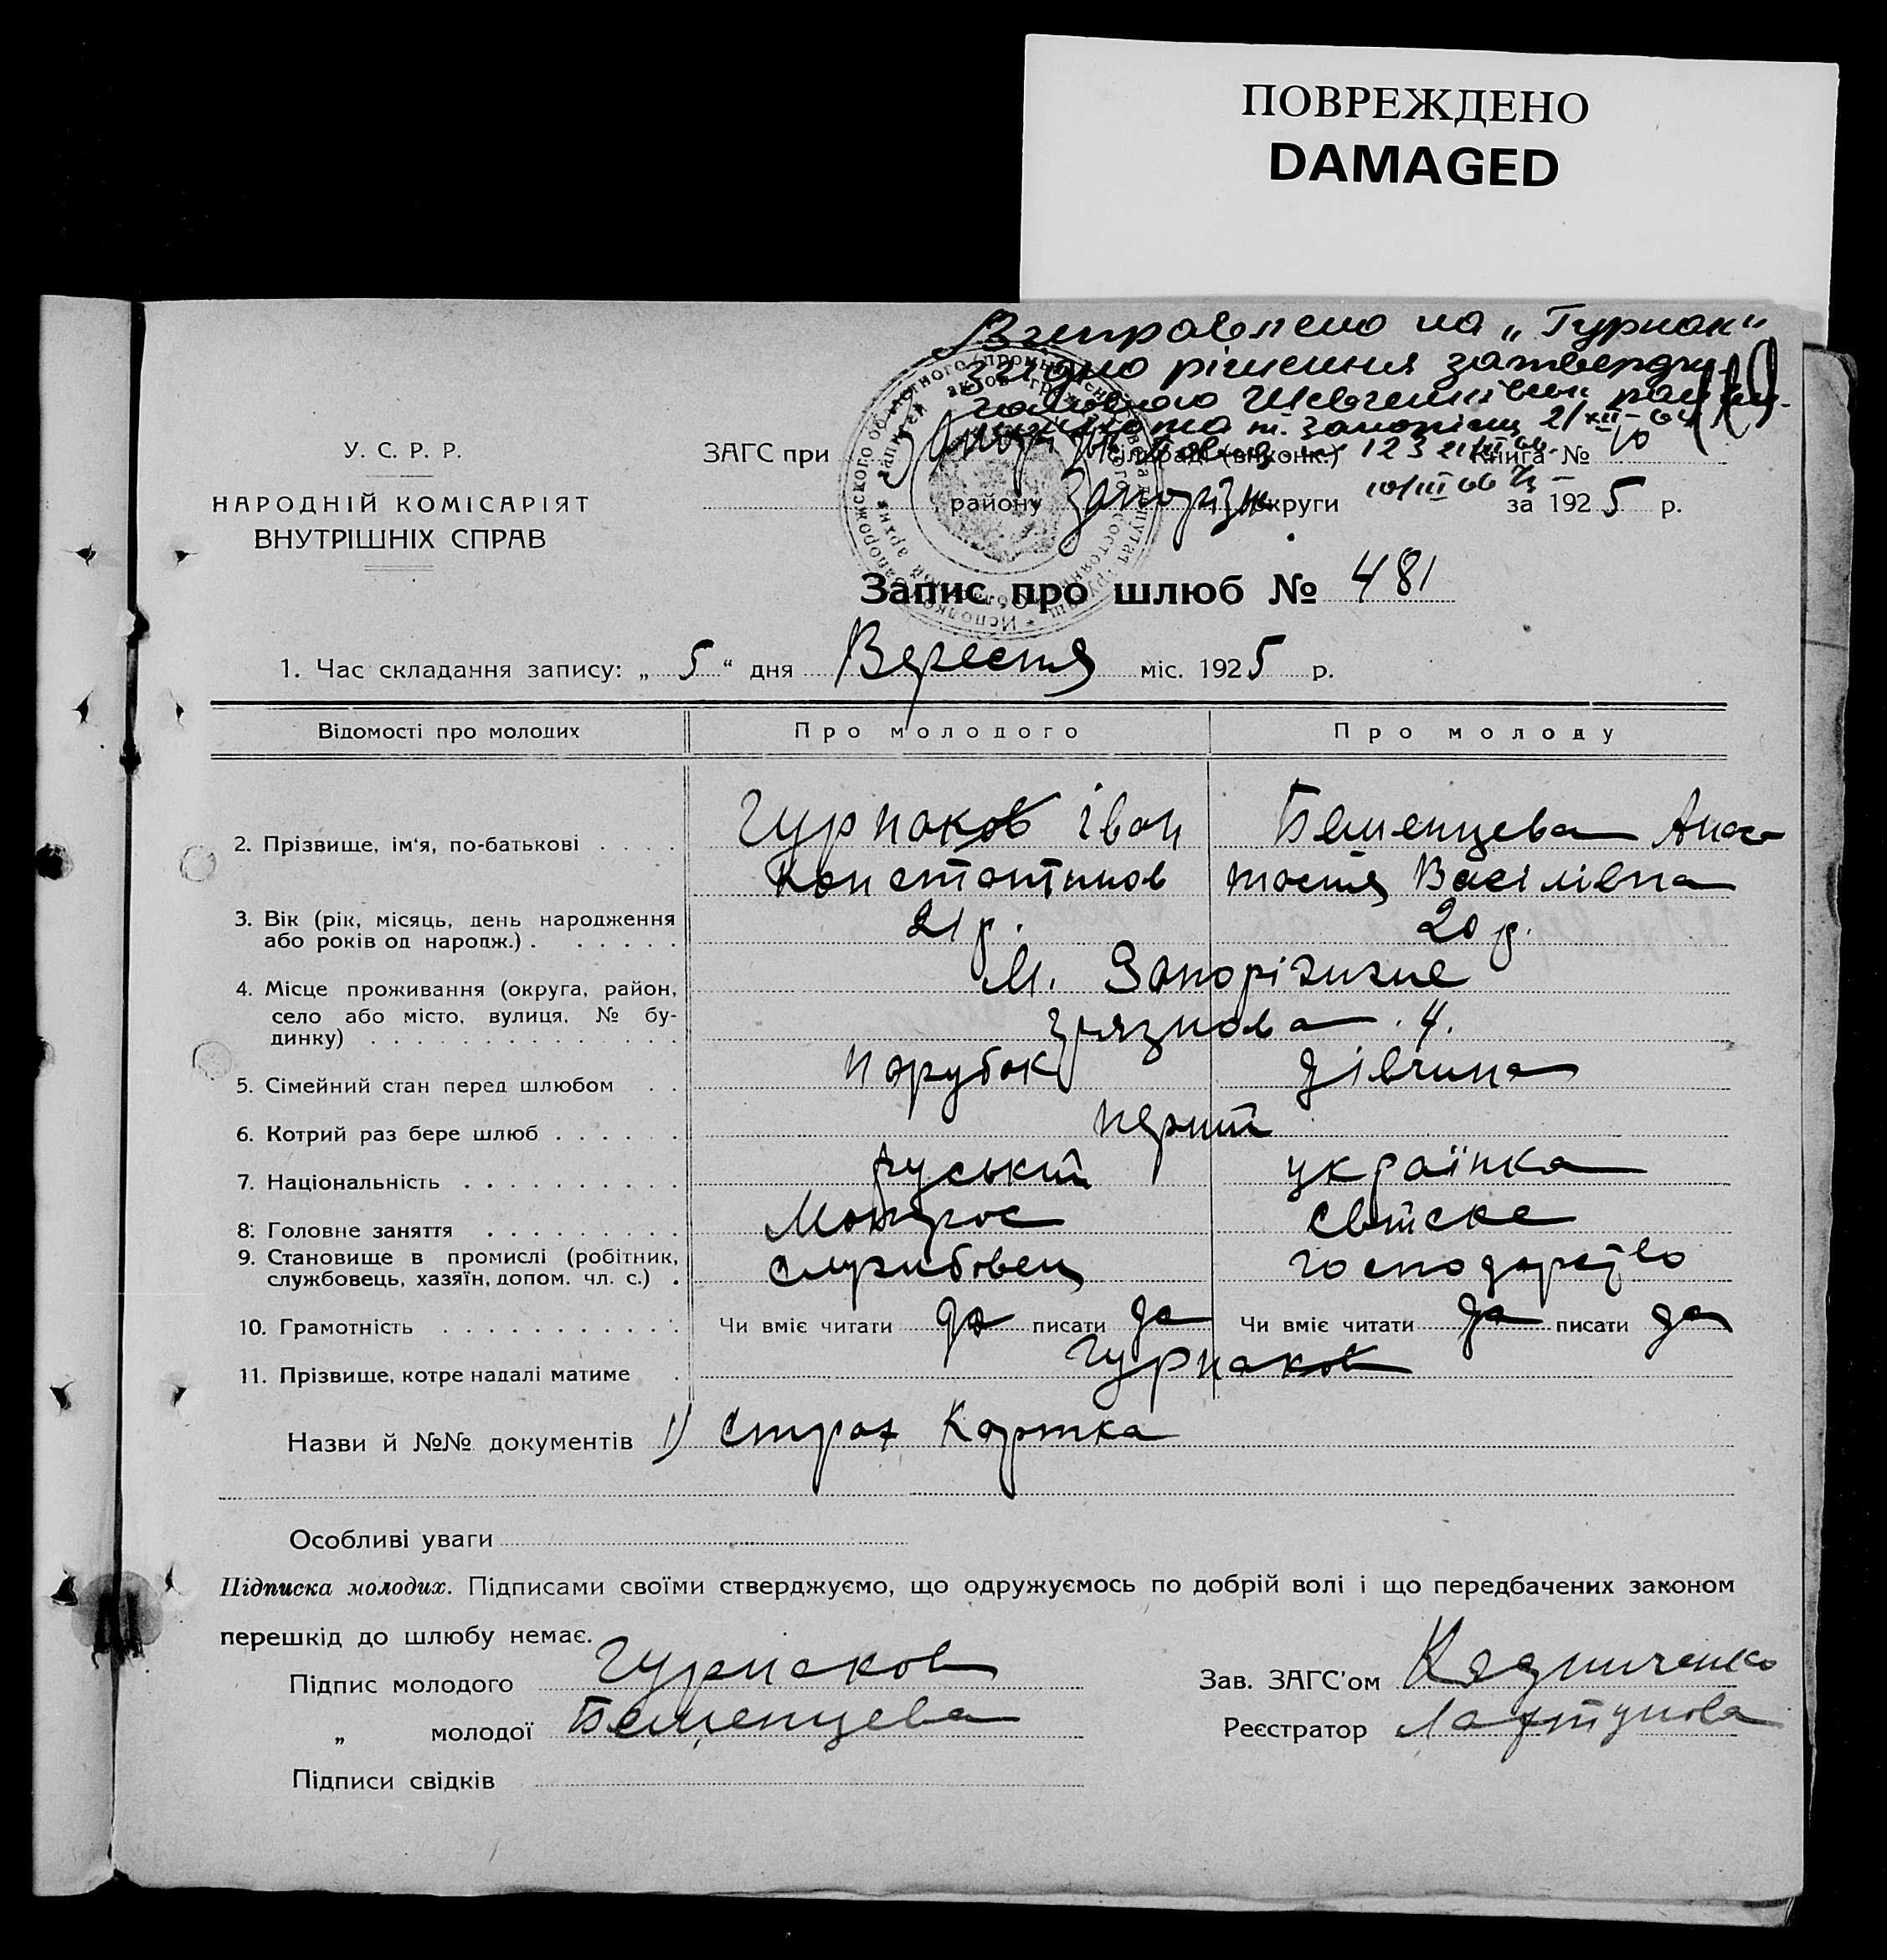 ПОВРЕЖДЕНО
DAMAGED
Виправлено на „Гурнак"
згідно рішення затвердж.
м. Запоріжжя 21/XII-64
У. С. Р. Р.
НАРОДНІЙ КОМІСАРІЯТ
ВНУТРІШНІХ СПРАВ
ЗАГС при (виконк.) Книга №
району Запоріжж округи за 1925 р.
Запис про шлюб № 481
1. Час складання запису: „5" дня Вересня міс. 1925 р.
Відомості про молодих Про молодого Про молоду
2. Прізвище, ім'я, по-батькові . . . . Гурнаков Іван Бементцева Анас
Константинов тасия Васілівна
3. Вік (рік, місяць, день народження
або років од народж.) . . . . . . 21 р. 20 р.
4. Місце проживання (округа, район,
село або місто, вулиця, № бу-
динку) . . . . . . . . . . . . . . .
М. Запоріжжє
Грязнова . 4.
5. Сімейний стан перед шлюбом . . парубок дівчина
6. Котрий раз бере шлюб . . . . . . перший
7. Національність . . . . . . . . . . руський українка
8. Головне заняття . . . . . . . . . Матрос
9. Становище в промислі (робітник,
службовець, хазяїн, допом. чл. с.) . службовец господарство
10. Грамотність . . . . . . . . . . . . Чи вміє читати да писати да Чи вміє читати да писати да
11. Прізвище, котре надалі матиме . Гурнаков
Назви й №№ документів 1) страх картка
Особливі уваги
Підписка молодих. Підписами своїми стверджуємо, що одружуємось по добрій волі і що передбачених законом
перешкід до шлюбу немає.
Підпис молодого Гурнаков Зав. ЗАГС'ом
„ молодої Бементцева Реєстратор
Підписи свідків